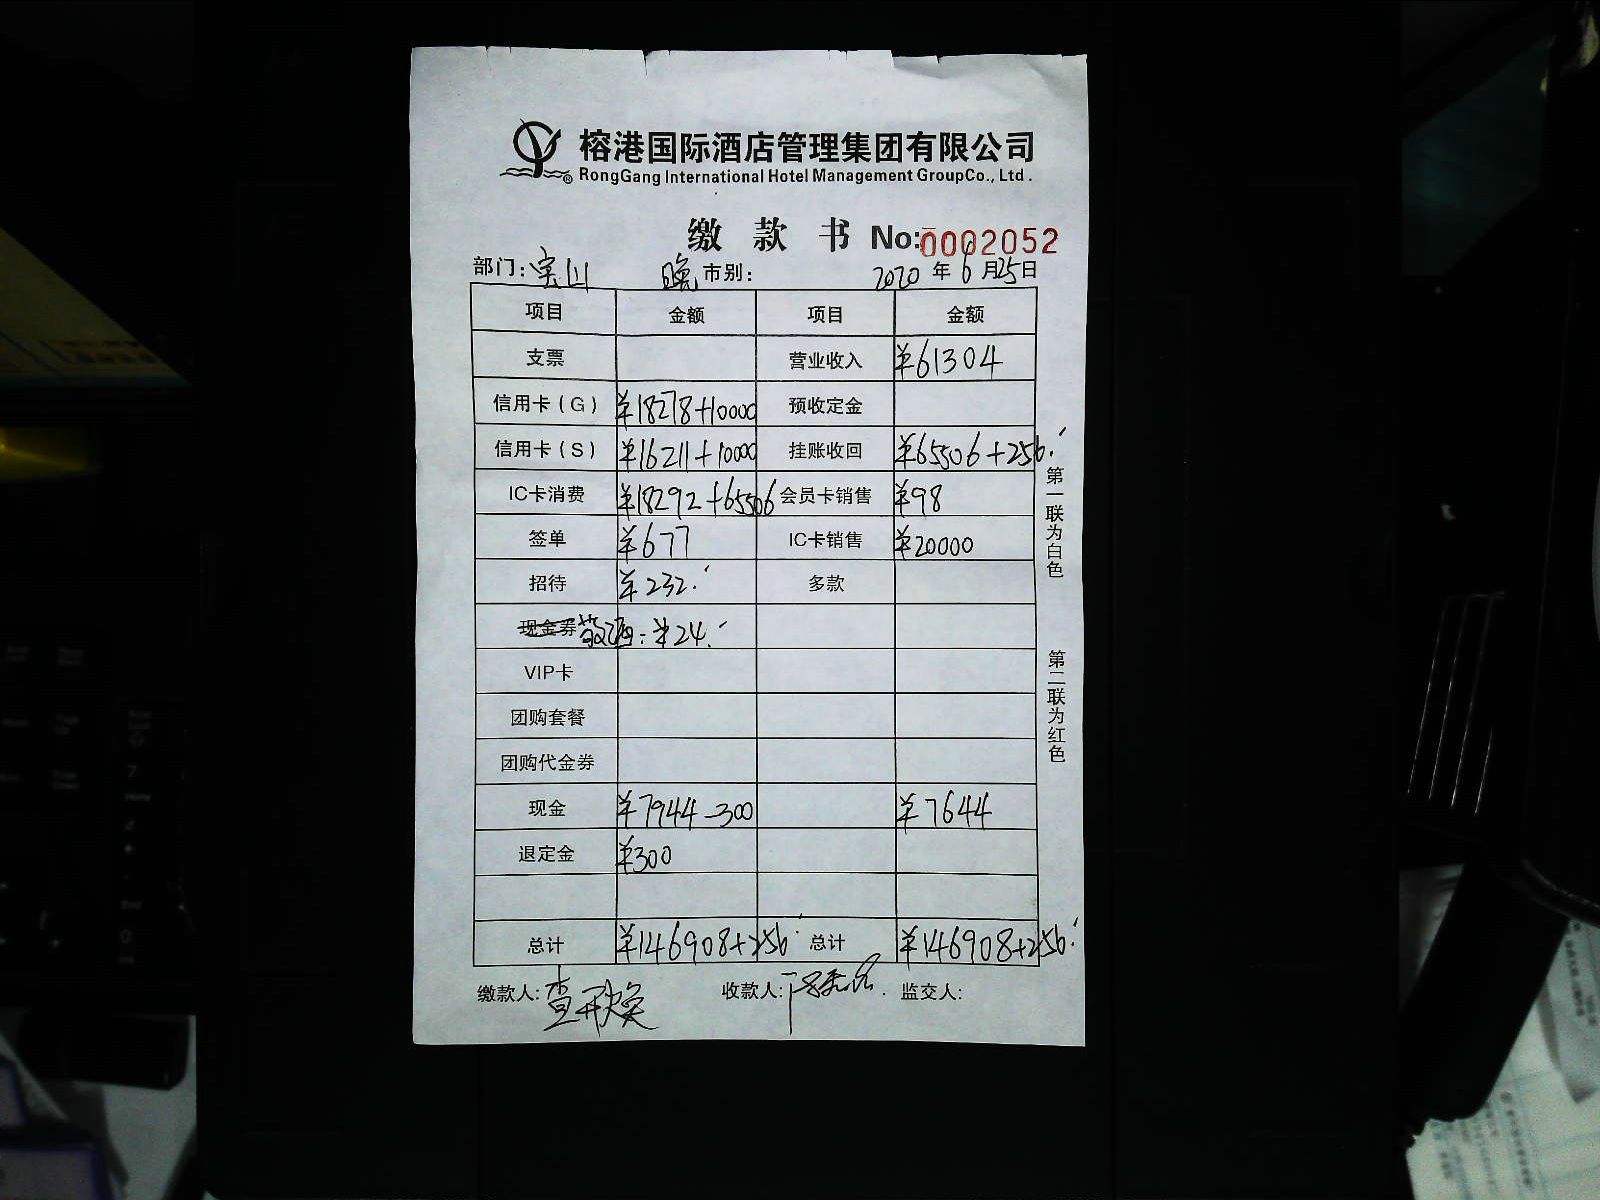 榕港国际酒店管理集团有限公司
RongGang International Hotel Management GroupCo., Ltd.
缴款书 No:0002052
部门:宝山 晚市别: 2020年6月25日
项目 金额 项目 金额
支票 营业收入 ¥61304
信用卡(G) ¥18278+10000 预收定金
信用卡(S) ¥16211+10000 挂账收回 ¥65506+256.
IC卡消费 ¥18292+65506 会员卡销售 ¥98
签单 ¥677 IC卡销售 ¥20000
招待 ¥232. 多款
现金券 敬酒:¥24.
VIP卡
团购套餐
团购代金券
现金 ¥7944-300 ¥7644
退定金 ¥300
总计 ¥146908+256 总计 ¥146908+256.
缴款人: 收款人: 监交人:
第一联为白色
第二联为红色